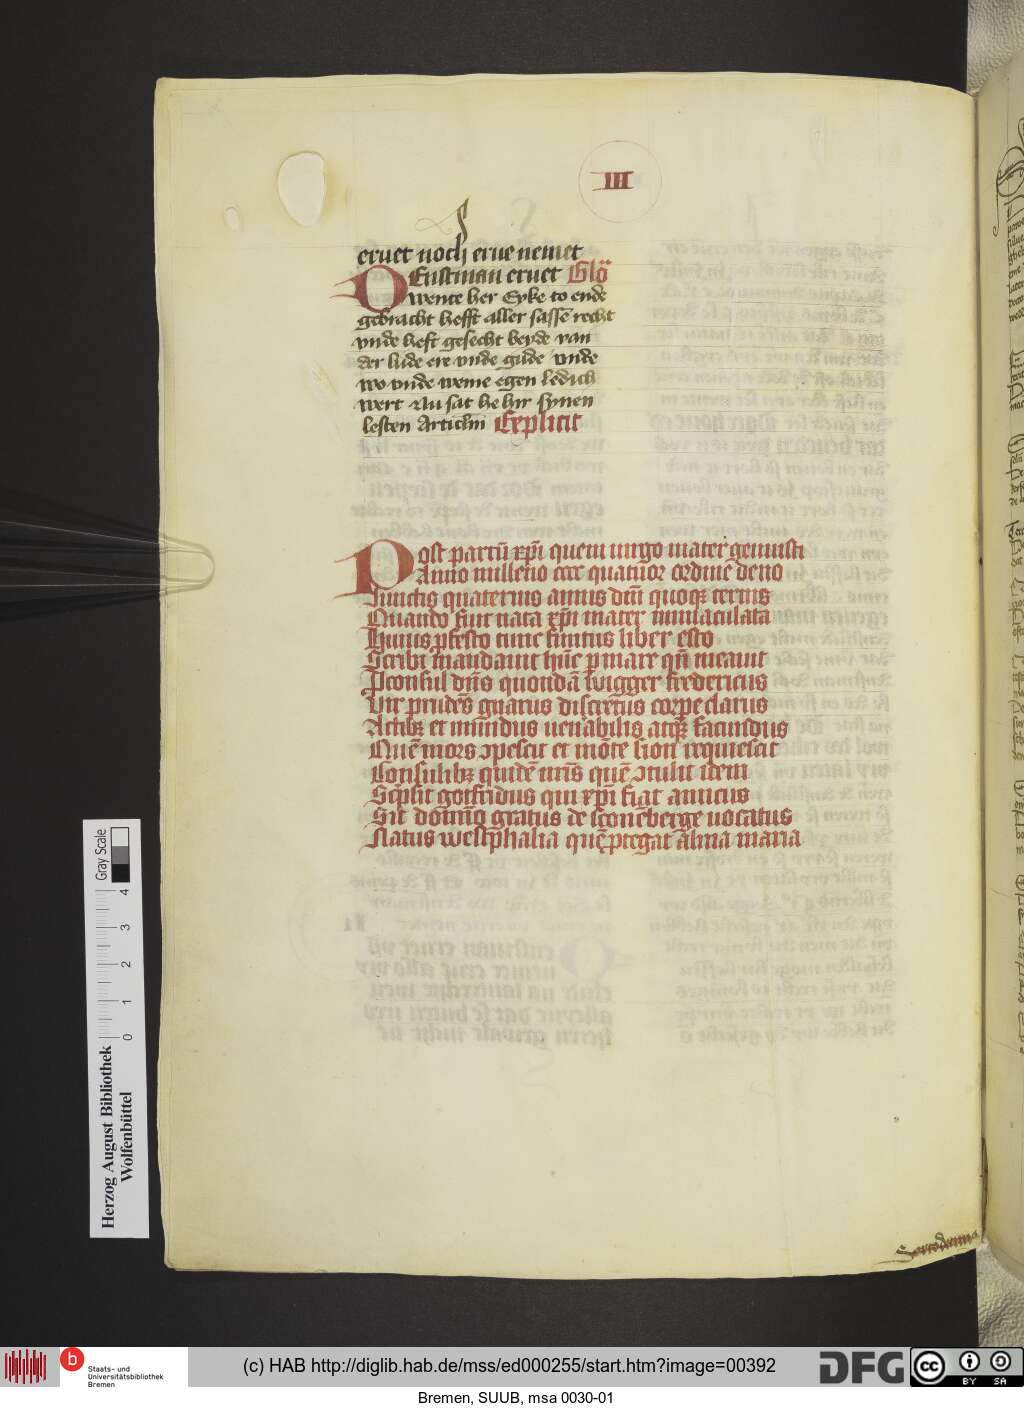 III
eruet noch erue nemet
DEnstman eruet Glo
wente her Eyke to ende
gebracht hefft aller sassē recht
vnde heft gesecht beyde van
der lude ere vnde gude vnde
wo vnde weme egen ledich
wert Nu sat he hir synen
lesten Articlm Explicit
Post partū xpi quem uirgo mater genuisti
Anno milleno cccc quatuor ordine deno
Iunctis quaternis annis dnī quoqꝫ ternis
Quando fuit nata xpi mater inmaculata
Huius ꝓfesto tunc finitus liber esto
Scribi mandauit hūc
Pconsul dns quondā fredericus
Vir prudēs gnarus discretus corpe clarus
Actibꝫ et mundus uenabilis atqꝫ facundus
Quē mors ɔpescit et mōte sion requiescat
Consulibꝫ quidē uris quē ɔtulit idem
Scpsit gotfridus qui xpi fiat amicus
Sit domīo gratus de sconeberge uocatus
Natus westphalia quē ꝓtegat alma maria
Gray Scale
4
3
2
1
0
Herzog August Bibliothek
Wolfenbüttel
b
Staats- und
Universitätsbibliothek
Bremen
(c) HAB http://diglib.hab.de/mss/ed000255/start.htm?image=00392
DFG
cc
BY SA
Bremen, SUUB, msa 0030-01